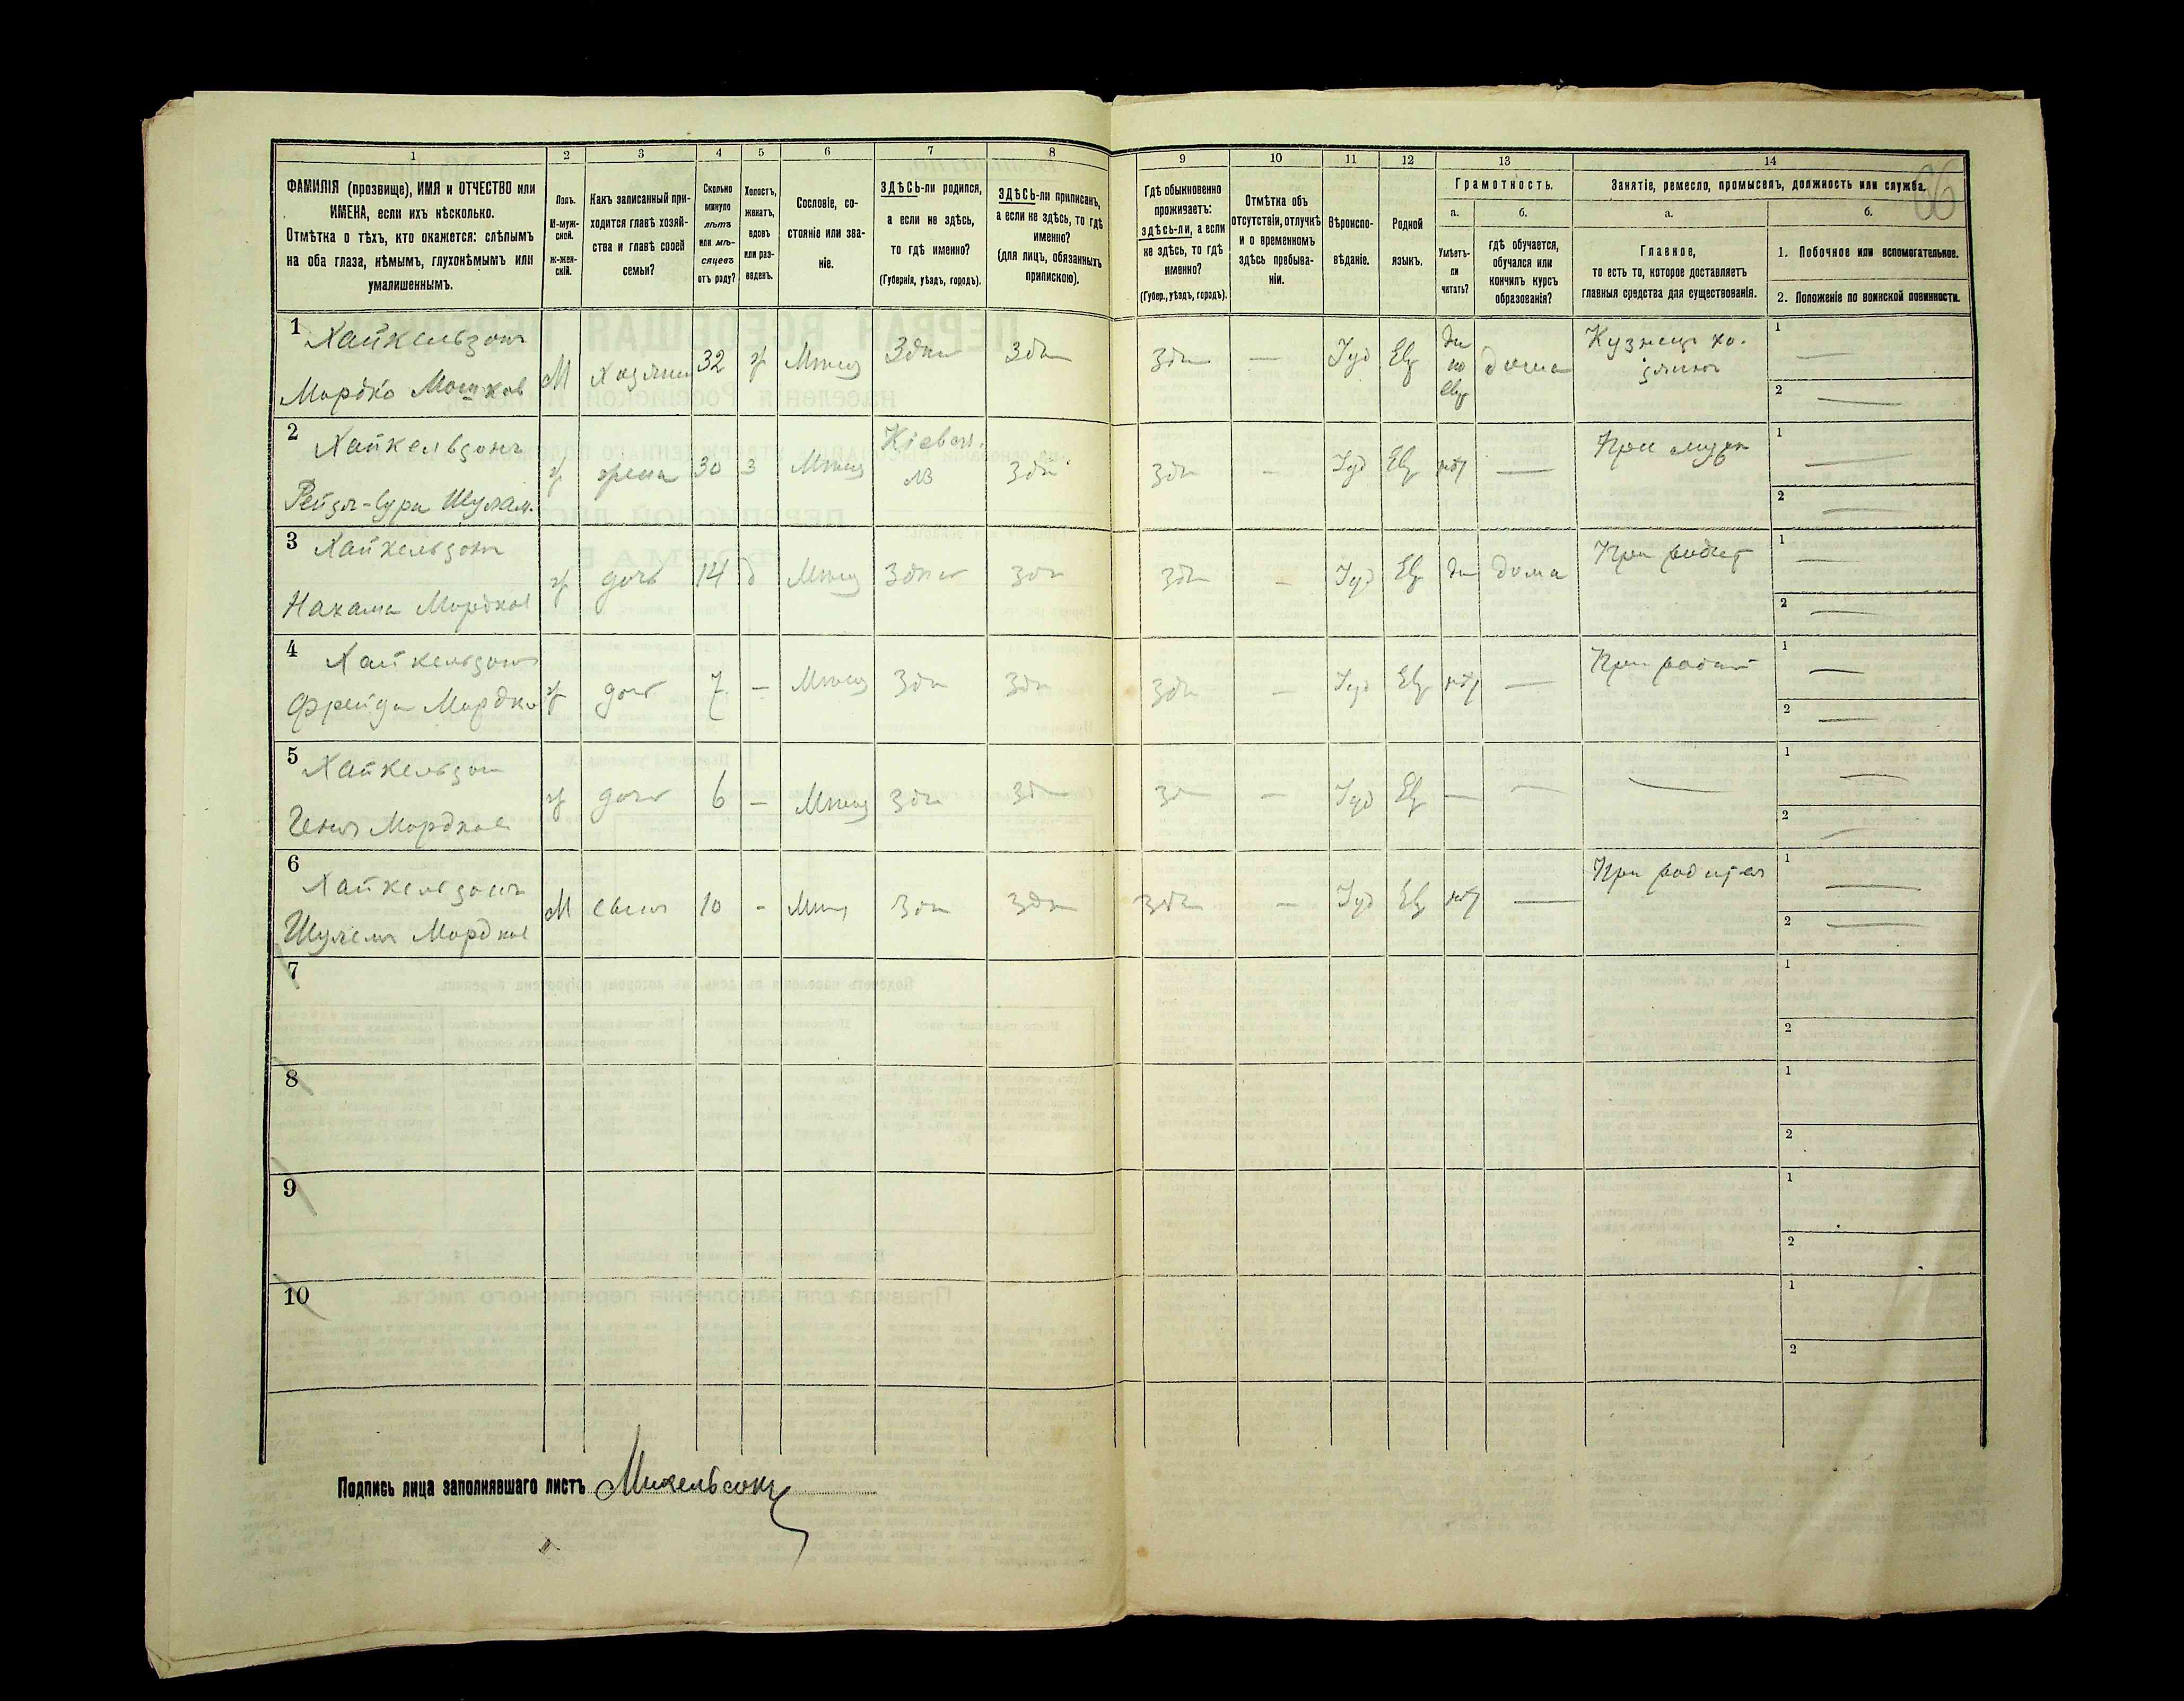 1 2 3 4 5 6 7 8 9 10 11 12 13 14
66
ФАМИЛІЯ (прозвище), ИМЯ и ОТЧЕСТВО или
ИМЕНА, если ихъ нѣсколько.
Отмѣтка о тѣхъ, кто окажется: слѣпымъ
на оба глаза, нѣмымъ, глухонѣмымъ или
умалишеннымъ.
Полъ.
М-муж-
ской.
ж-жен-
скій.
Какъ записанный при-
ходится главѣ хозяй-
ства и главѣ своей
семьи?
Сколько
минуло
лѣтъ
или мѣ-
сяцевъ
отъ роду?
Холостъ,
женатъ,
вдовъ
или раз-
веденъ.
Сословіе, со-
стояніе или зва-
ніе.
ЗДѢСЬ-ли родился,
а если не здѣсь,
то гдѣ именно?
(Губернія, уѣздъ, городъ).
ЗДѢСЬ-ли приписанъ,
а если не здѣсь, то гдѣ
именно?
(для лицъ, обязанныхъ
припискою).
Гдѣ обыкновенно
проживаетъ:
здѣсь-ли, а если
не здѣсь, то гдѣ
именно?
(Губер., уѣздъ, городъ).
Отмѣтка объ
отсутствіи, отлучкѣ
и о временномъ
здѣсь пребыва-
ніи.
Вѣроиспо-
вѣданіе.
Родной
языкъ.
Грамотность.
а.
Умѣетъ-
ли
читать?
б.
гдѣ обучается,
обучался или
кончилъ курсъ
образованія?
Занятіе, ремесло, промыселъ, должность или служба.
а.
Главное,
то есть то, которое доставляетъ
главныя средства для существованія.
б.
1. Побочное или вспомогательное.
2. Положеніе по воинской повинности.
1 Хайкельзонъ
Мордко Мошков М Хозяин 32 ж Мѣщ Здѣсь Здѣ Здѣ — Іуд Евр да по евр дома Кузнецъ хо-
зяинъ 1 — 2 —
2 Хайкельзонъ
Рейзя-Сура Шулим. ж жена 30 з Мѣщ Кіевск. Здѣ Здѣ — Іуд Евр нѣт — При мужѣ 1 — 2 —
3 Хайкельзонъ
Нахама Мордков ж дочь 14 д Мѣщ Здѣсь Здѣ Здѣ — Іуд Евр да дома При родит 1 — 2 —
4 Хайкельзонъ
Фрейда Мордко ж дочь 7 — Мѣщ Здѣ Здѣ Здѣ — Іуд Евр нѣт — При родит 1 — 2 —
5 Хайкельзон
Геня Мордков ж дочь 6 — Мѣщ Здѣ Здѣ Здѣ — Іуд Евр — — — 1 — 2 —
6 Хайкельзонъ
Шулем Мордков М сынъ 10 - Мѣщ Здѣ Здѣ Здѣ — Іуд Евр нѣт — При родител 1 — 2 —
7 1 2
8 1 2
9 1 2
10 1 2
Подпись лица заполнявшаго листъ Михельсонъ